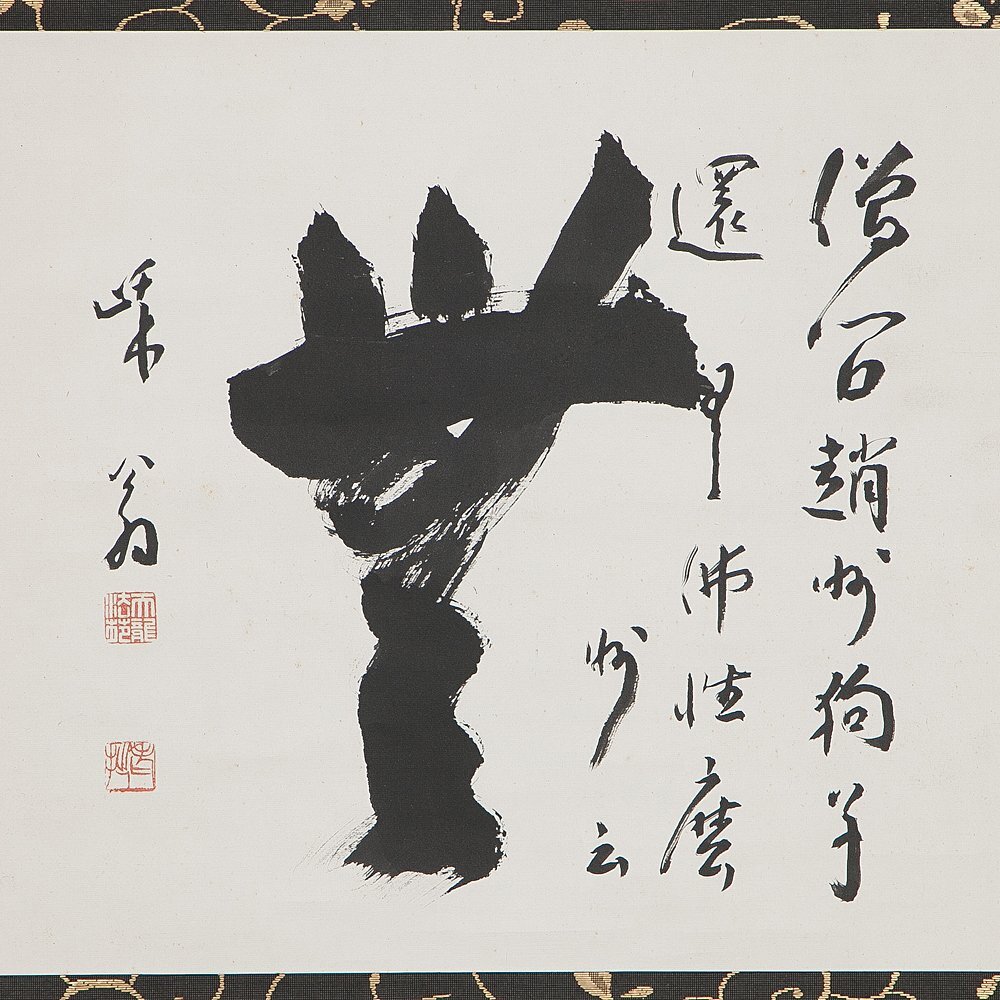 僧問趙州狗子
還有佛性麼
州云
無
翁